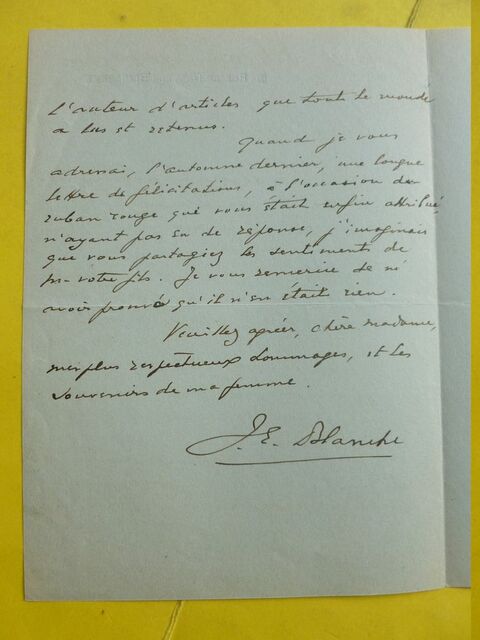 l'auteur d'articles que tout le monde
a lus et retenus.
Quand je vous
adressai, l'automne dernier, une longue
lettre de félicitations, à l'occasion du
ruban rouge qui vous était enfin attribué,
n'ayant pas eu de réponse, j'imaginais
que vous partagiez les sentiments de
M. votre fils. Je vous remercie de m'
avoir prouvé qu'il n'en était rien.
Veuillez agréer, chère madame,
mes plus respectueux hommages, et les
souvenirs de ma femme.
J. E. Blanche